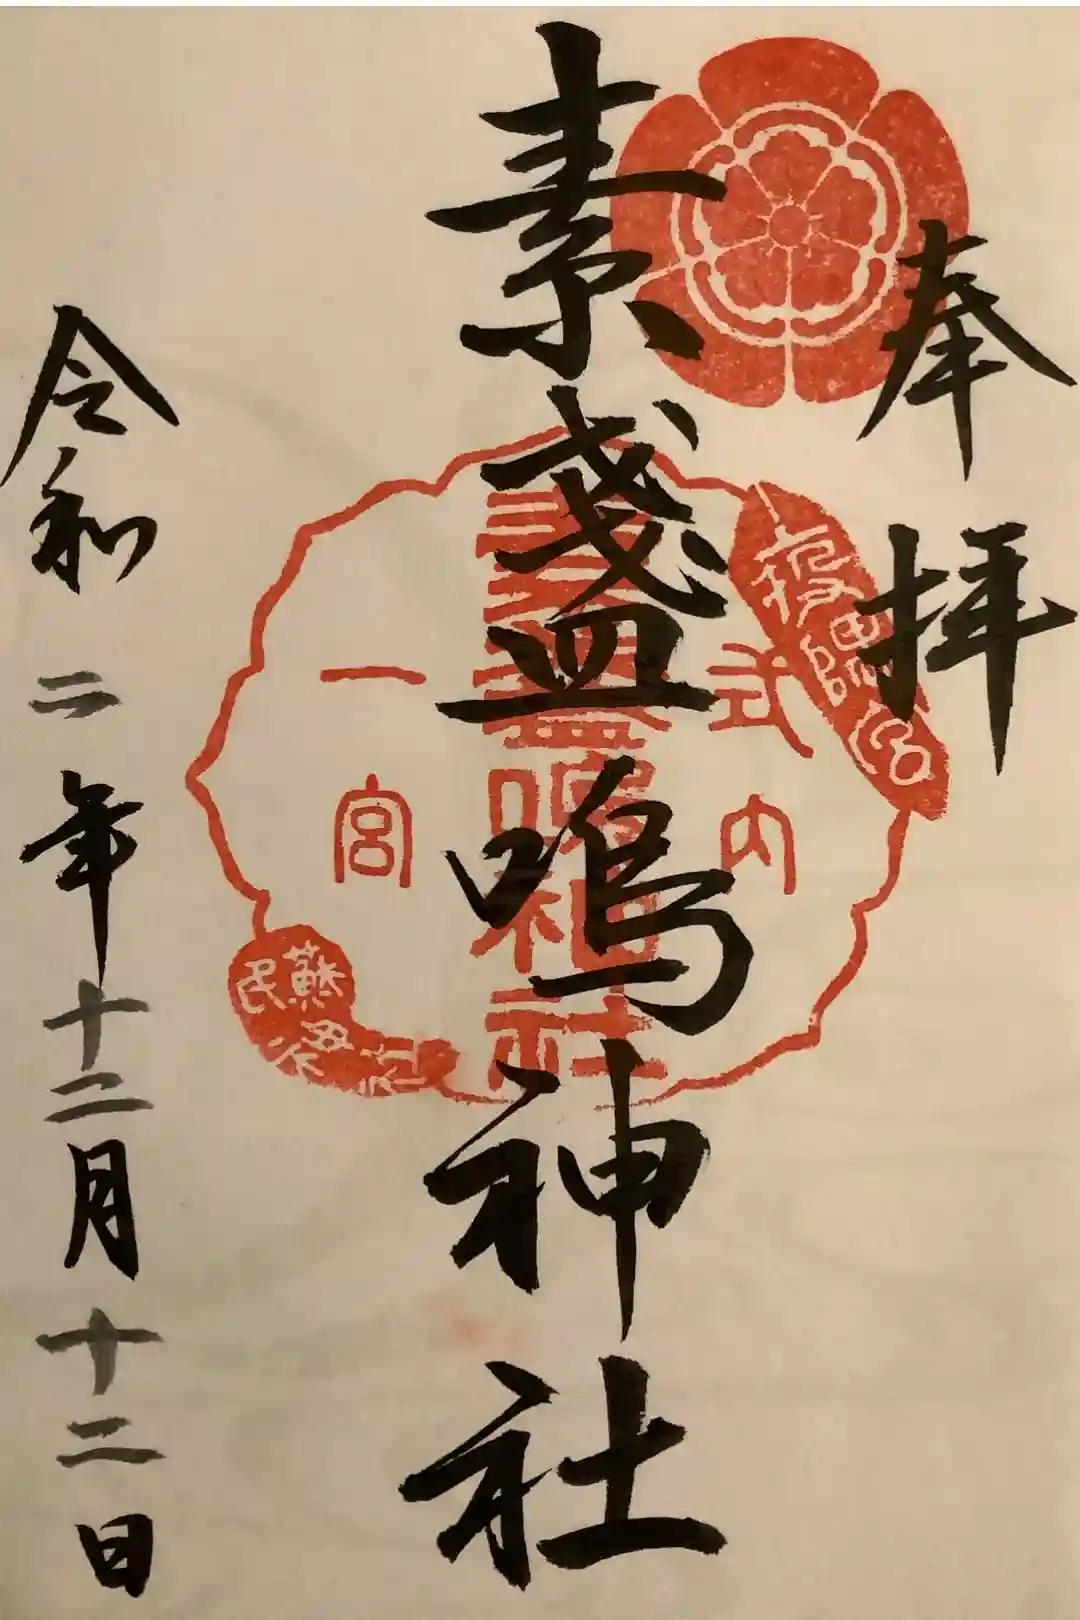 奉拝
素盞嗚神社
令和二年十二月十二日
式内
素盞嗚神社
一宮
蘇民